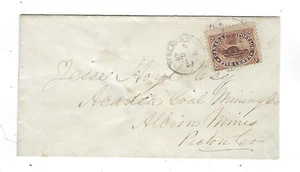 CANADA POSTAGE
FIVE CENTS
Jesse Hoyt Esq
Acadia Coal Mining Co
Albion Mines
Pictou Co